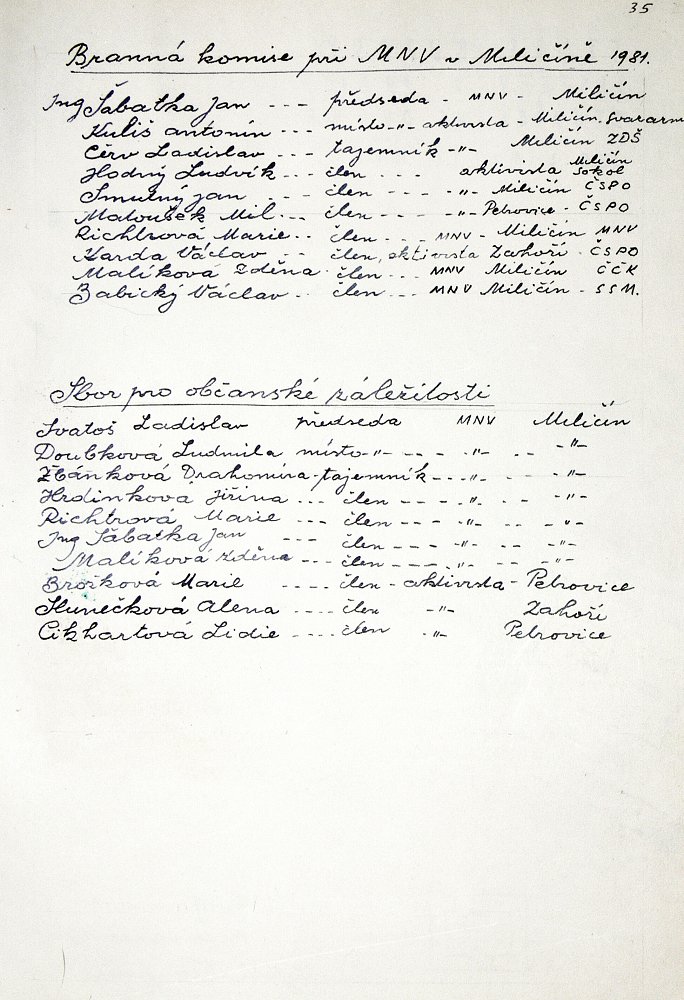 35
Branná komise při MNV v Miličíně 1981.
Ing Šabatka Jan --- předseda - MNV - Miličín
Kuliš Antonín --- místo -"- aktivista - Miličín. Svazarm
Červ Ladislav --- tajemník -"- Miličín ZDŠ
Hodný Ludvík -- - člen . . . aktivista Miličín Sokol
Smutný Jan --- člen --- -"- Miličín ČSPO
Matoušek Mil... člen --- -"- Petrovice - ČSPO
Richtrová Marie.. člen - .. MNV - Miličín MNV
Karda Václav -- člen, aktivista Zahoří . ČSPO
Malíková Zděna . člen... MNV Miličín ČČK
Babický Václav .. člen... MNV Miličín - SSM.
Sbor pro občanské záležitosti
Svatoš Ladislav předseda MNV Miličín
Doubková Ludmila místo -"- -- - -"- -- -"-
Zbánková Drahomíra - tajemník - - -"- -- - -"-
Hrdinková Jiřina --- člen --- -"- -- -"-
Richtrová Marie --- člen --- -"- -- -"-
Ing Šabatka Jan --- člen --- -"- -- -"-
Malíková Zděna --- člen --- -"- -- -"-
Brožková Marie ---- člen - aktivista - Petrovice
Slunečková Alena ---- člen -"- Zahoří
Cikhartová Lidie ---- člen -"- Petrovice